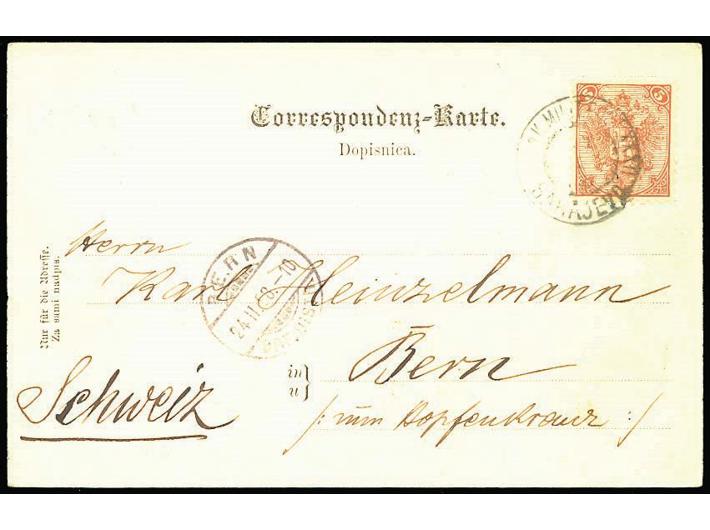 Correspondenz-Karte.
Dopisnica.
5 5
SARAJEVO
Nur für die Adresse.
Za sami naapis.
Herrn
Karl Heinzelmann
BERN
24.II.98.-10
in
u
Bern
Schweiz
/: zum Hopfenkranz :/